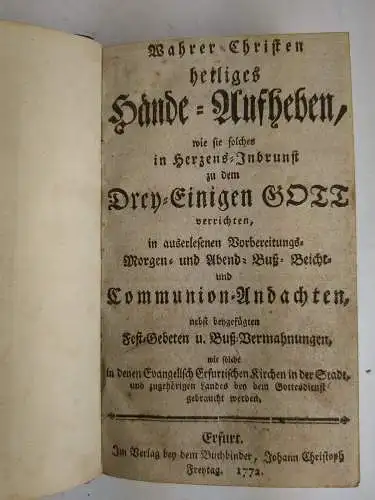 Wahrer Christen
heiliges
Hände-Aufheben,
wie sie solches
in Herzens-Inbrunst
zu dem
Drey-Einigen GOTT
verrichten,
in auserlesenen Vorbereitungs-
Morgen- und Abend- Buß- Beicht-
und
Communion-Andachten,
nebst beygefügten
Fest-Gebeten u. Buß-Vermahnungen,
wie solche
in denen Evangelisch Erfurtischen Kirchen in der Stadt,
und zugehörigen Landes bey dem Gottesdienst
gebraucht werden.
Erfurt.
Im Verlag bey dem Buchbinder, Johann Christoph
Freytag. 1772.